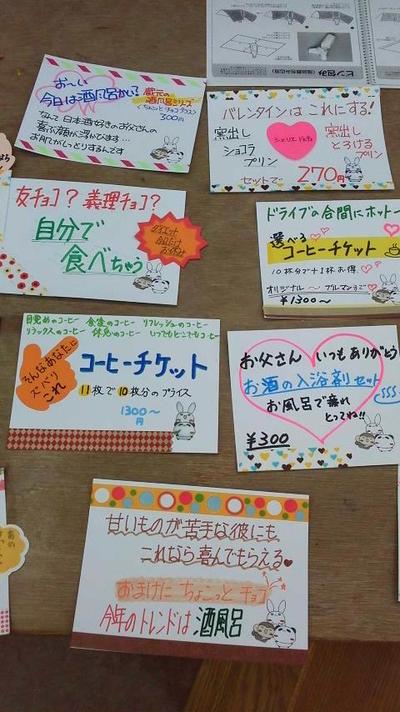 ピン包み
おーい
今日は酒風呂かい?
蔵元の
酒風呂シリーズ
ちょこっとチョコプラス
300円
なんて日本酒好きのお父さんの
喜ぶ顔が浮かびます…
お肌もしっとりするんです
バレンタインはこれにする!
窯出し
ショコラ
プリン
窯出し
とろける
プリン
セットで 270円
友チョコ? 義理チョコ?
自分で
食べちゃう
ドライブの合間にホット一
選べる
コーヒーチケット
10枚分で+1枚お得
オリジナル〜ブルマンまで
¥1300〜
目覚めのコーヒー 食後のコーヒー リフレッシュのコーヒー
リラックスのコーヒー 休息のコーヒー いつもどこでもコーヒー
そんなあなたに
ズバリ
これ
コーヒーチケット
11枚で10枚分のプライス
1300〜
円
お父さん いつもありがとう
お酒の入浴剤セット
お風呂で疲れ
とってね!!
¥300
甘いものが苦手な彼にも
これなら喜んでもらえる
おまけに ちょこっと チョコ
今年のトレンドは 酒風呂